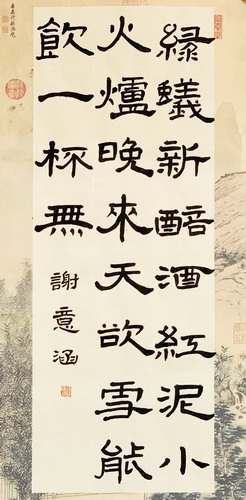 綠蟻新醅酒紅泥小
火爐晚來天欲雪能
飲一杯無
謝意涵